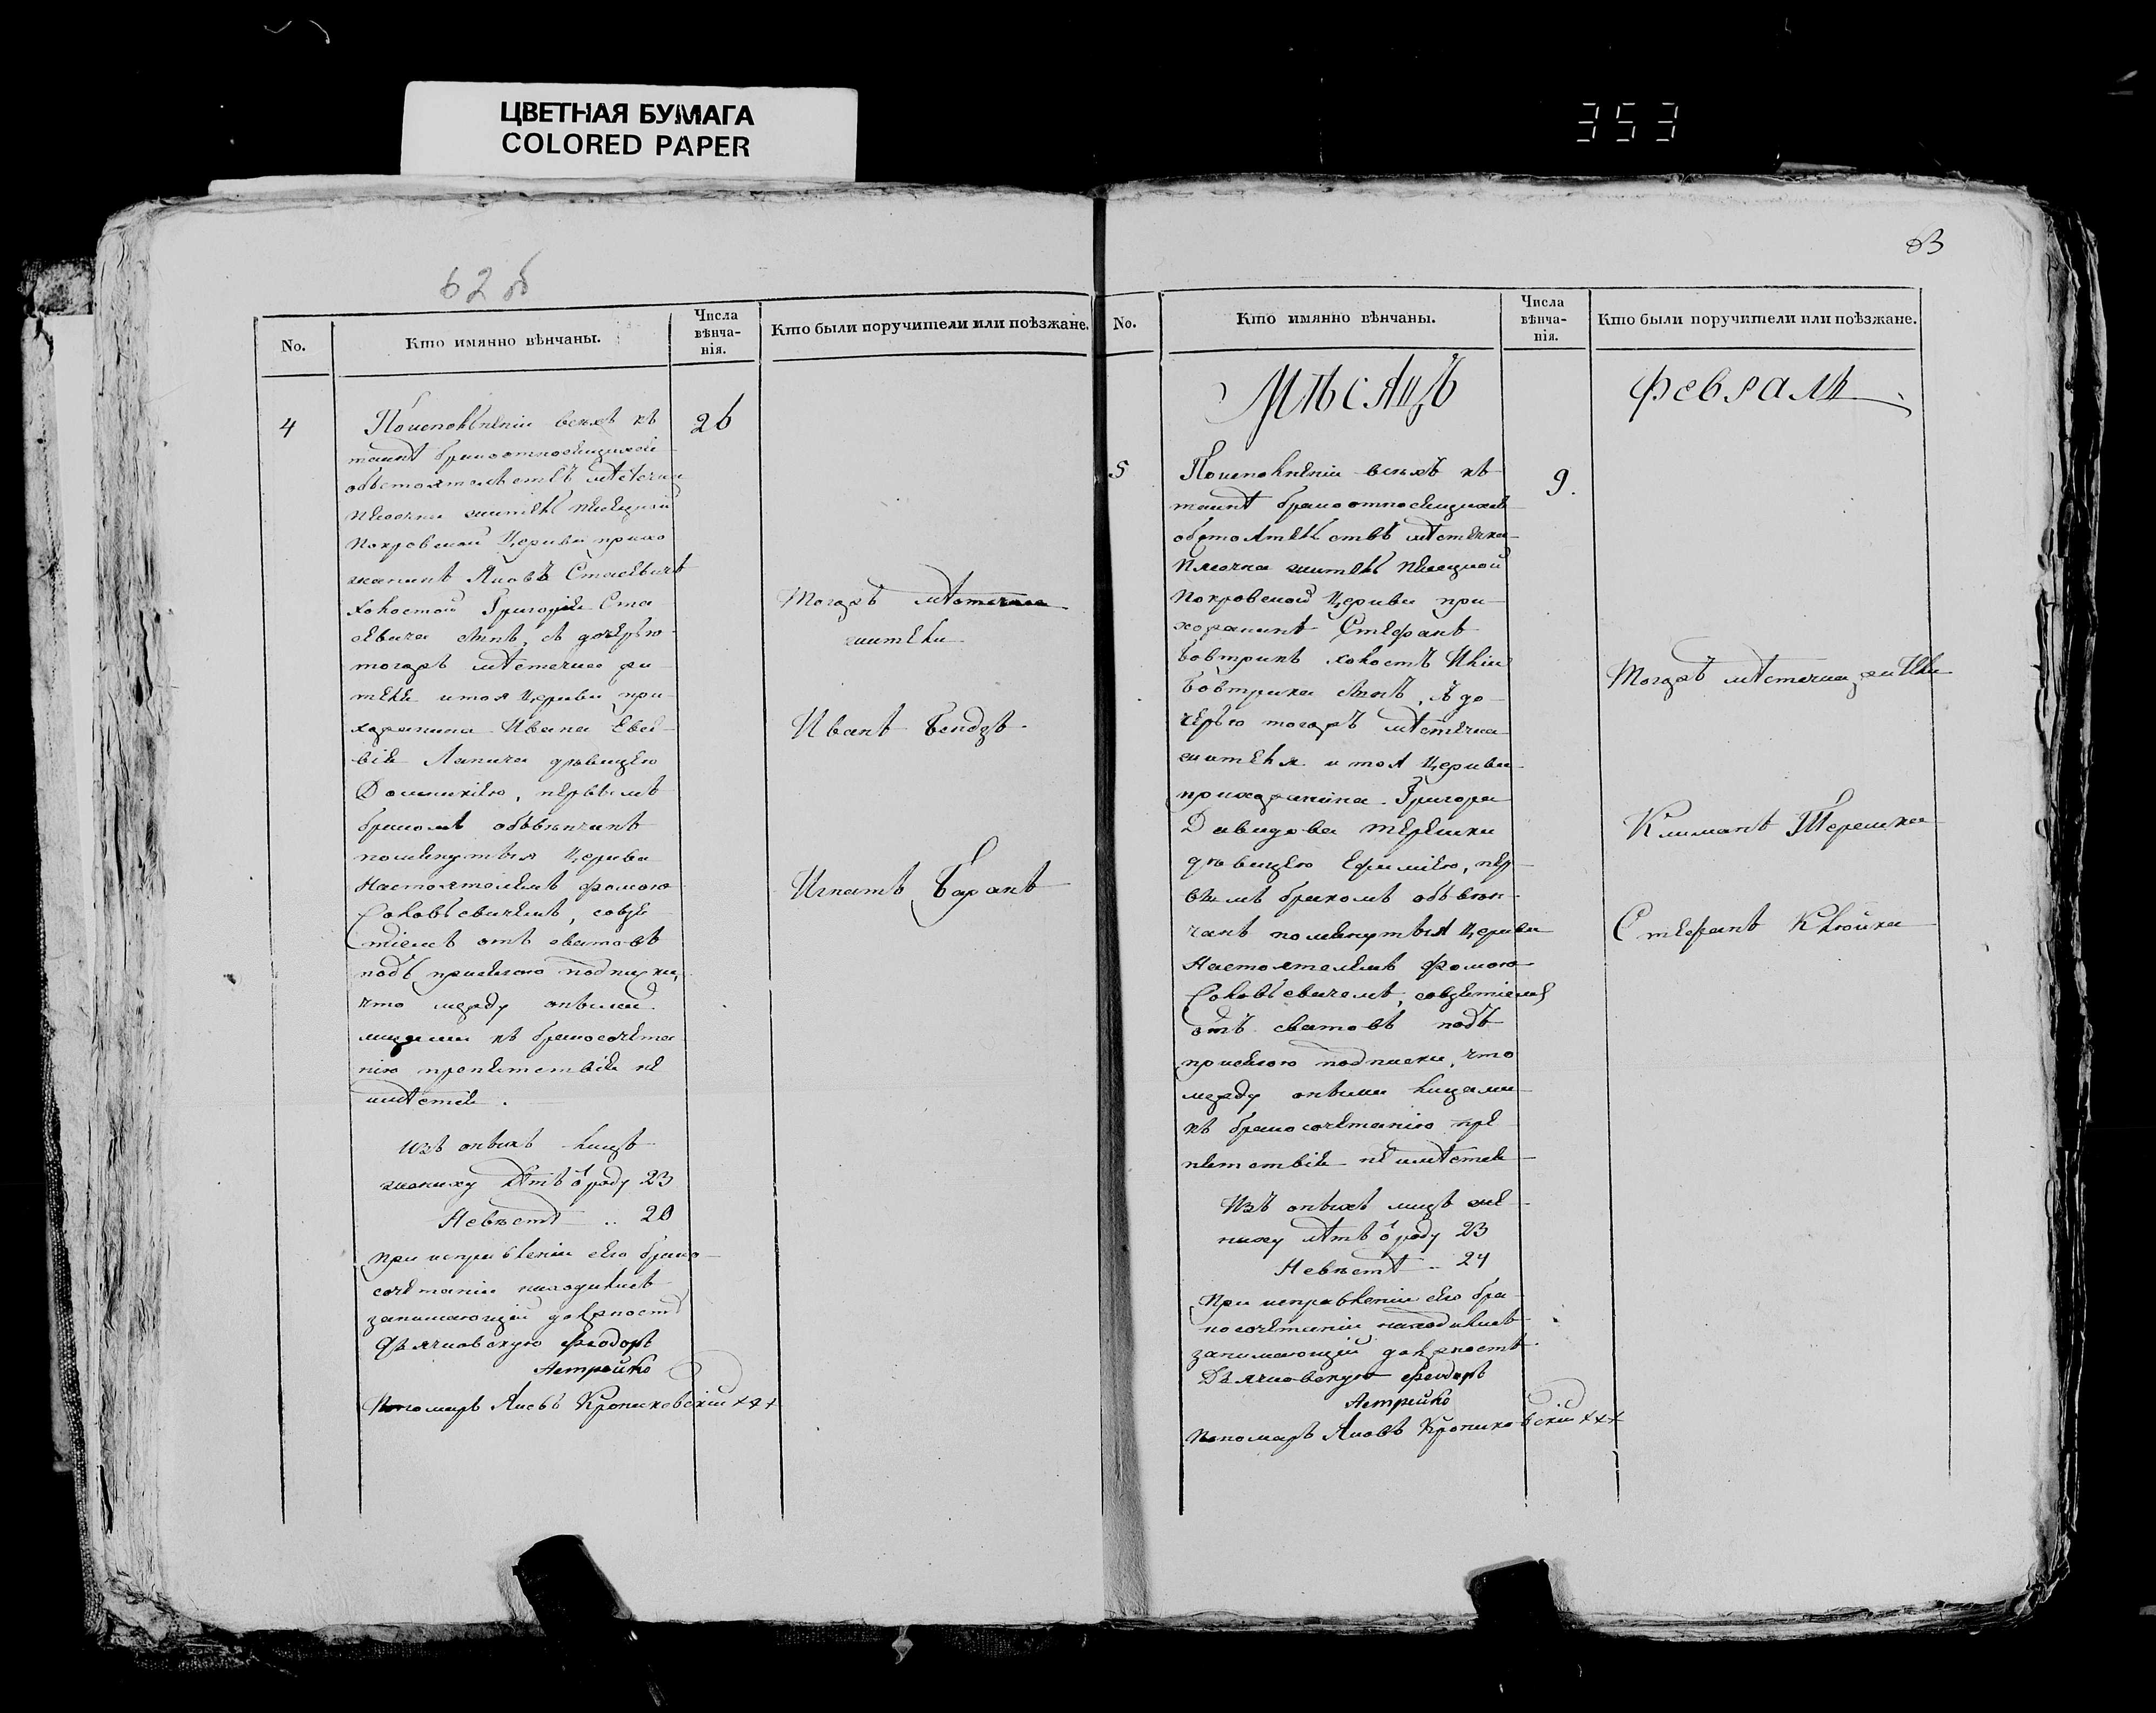 ЦВЕТНАЯ БУМАГА
COLORED PAPER
353
62 об
No.
Кто имянно вѣнчаны.
Числа
вѣнча-
нія.
Кто были поручители или поѣзжане.
4
По исполненіи всѣхъ къ
таинѣ брака относящихся
обстоятельствъ мѣстечка
житель
Покровской Церкви прихо
жанинъ Яковъ Стасевичъ
холостой Григорія Ста
севича сынъ, съ дочерью
тогожъ мѣстечка жи
теля и тоя Церкви при
хожанина Ивана Евсе
вія Лапича дѣвицею
Доминикіею, первымъ
бракомъ обвѣнчанъ
помянутыя Церкви
Настоятелемъ Фомою
отъ сватовъ
подъ присягою подписки,
что между оными
лицами къ бракосочета
нію препятствія не
имѣется.
Изъ оныхъ лицъ
жениху лѣтъ ѿ роду 23
Невѣстѣ .. 20
При исправленіи сего брако
сочетанія находились
занимающій должность
Дьячковскую Феодоръ
Астрейко
Пономарь Яковъ Кропиковскій +++
26
Тогожъ мѣстечка
жители
Иванъ Бендзъ
Игнатъ Баранъ
63
No.
Кто имянно вѣнчаны.
Числа
вѣнча-
нія.
Кто были поручители или поѣзжане.
Мѣсяцъ
Февраль
5
По исполненіи всѣхъ къ
таинѣ брака относящихся
обстоятельствъ мѣстечка
житель
Покровской Церкви при
хожанинъ Стефанъ
Бовтрикъ холостъ Иліи
Бовтрика сынъ, съ до
черью тогожъ мѣстечка
жителя и тоя Церкви
прихожанина Григора
Давидова Терешки
дѣвицею Ефиміею, пер
вымъ бракомъ обвѣн
чанъ помянутыя Церкви
Настоятелемъ Фомою
отъ сватовъ подъ
присягою подписки, что
между оными лицами
къ бракосочетанію пре
пятствія не имѣется
Изъ оныхъ лицъ же
ниху лѣтъ ѿ роду 23
Невѣстѣ .. 24
При исправленіи сего бра
косочетанія находились
занимающій должность
Дьячковскую Феодоръ
Астрейко
Пономарь Яковъ Кропиковскій +++
9.
Тогожъ мѣстечка жители
Климантъ Терешка
Стефанъ Клюйка